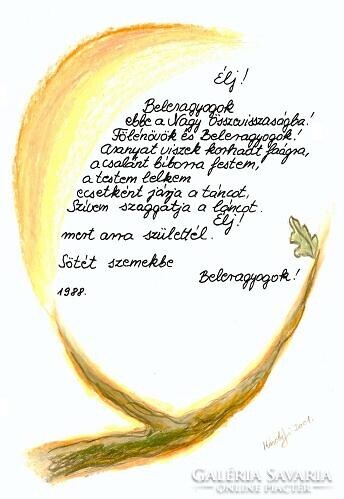 Élj!
Beleragyogok
ebbe a Nagy Összevisszaságba!
Fölénövök és Beleragyogok!
Aranyat viszek korhadt faágra,
a csalánt bíborra festem,
a testem lelkem
ecsetként járja a táncot,
Szívem szaggatja a láncot.
Élj!
mert arra születtél.
Sötét szemekbe
Beleragyogok!
1988.
2001.
GALÉRIA SAVARIA
ONLINE PIACTÉR